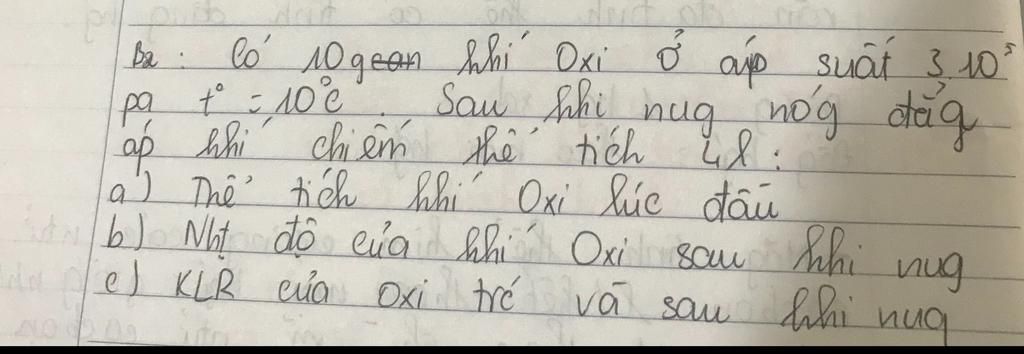 B2: Có 10g khí Oxi ở áp suất 3.10⁵
pa t° = 10°c. Sau khi nug nóg đẳg
áp khí chiếm thể tích 4l:
a) Thể tích khí Oxi lúc đầu
b) Nht độ của khí Oxi sau khi nug
c) KLR của oxi trc và sau khi nug